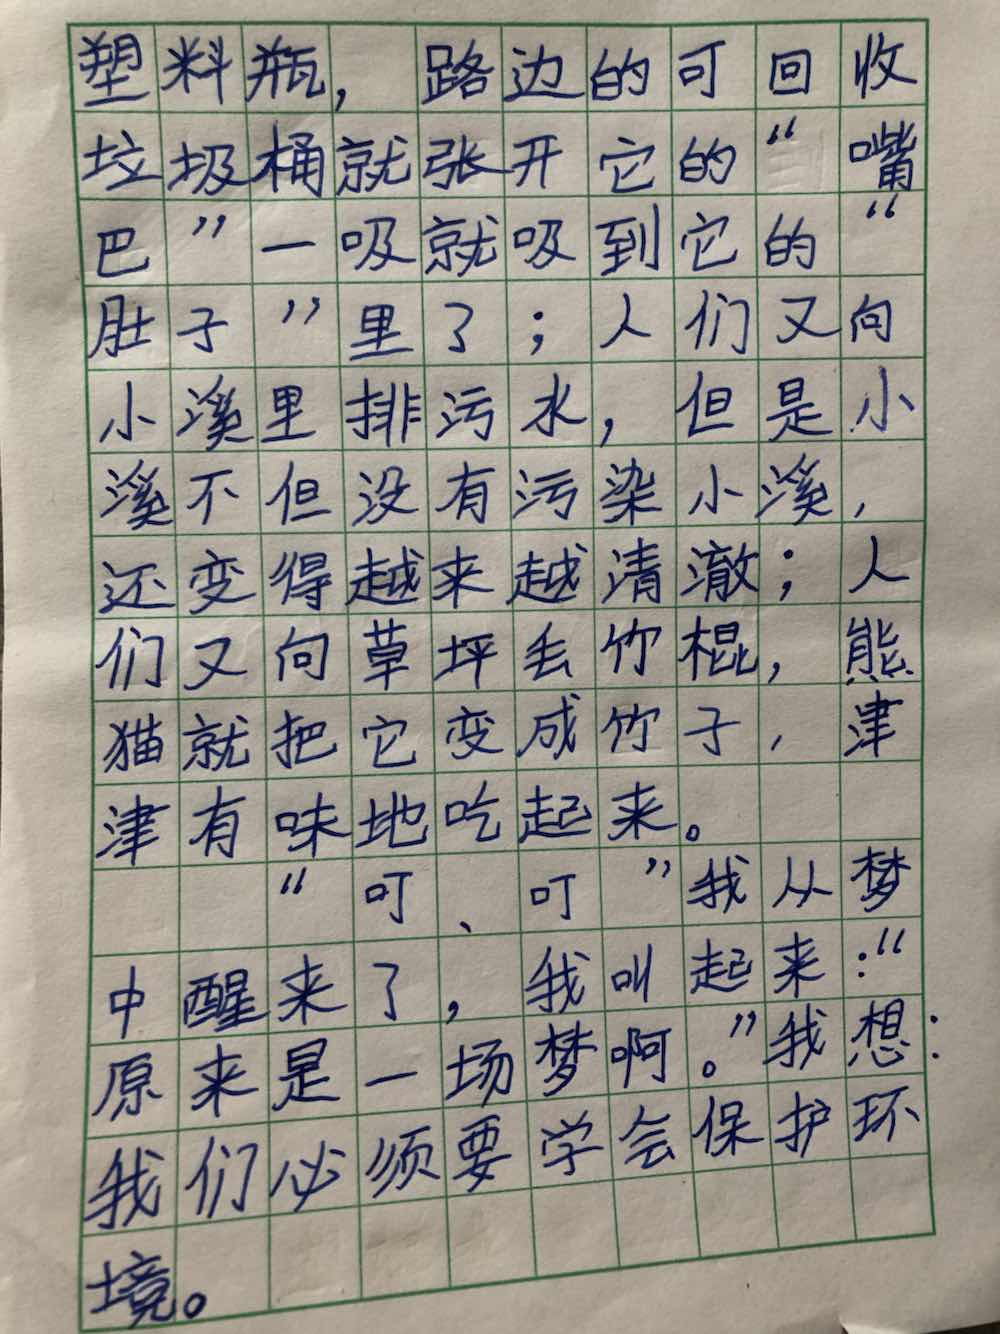 塑料瓶，路边的可回收
垃圾桶就张开它的“嘴
巴”一吸就吸到它的“
肚子”里了；人们又向
小溪里排污水，但是小
溪不但没有污染小溪，
还变得越来越清澈；人
们又向草坪丢竹棍，熊
猫就把它变成竹子，津
津有味地吃起来。
“叮、叮”我从梦
中醒来了，我叫起来：“
原来是一场梦啊。”我想：
我们必须要学会保护环
境。